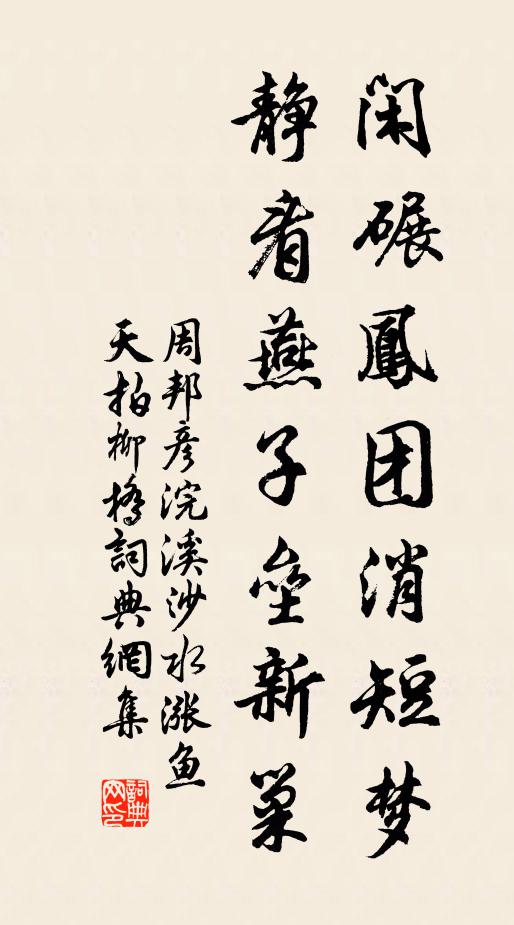 闲碾鳳团消短梦
静看燕子垒新巢
周邦彦浣溪沙水涨鱼
天拍柳桥詞典網集
詞典
网印